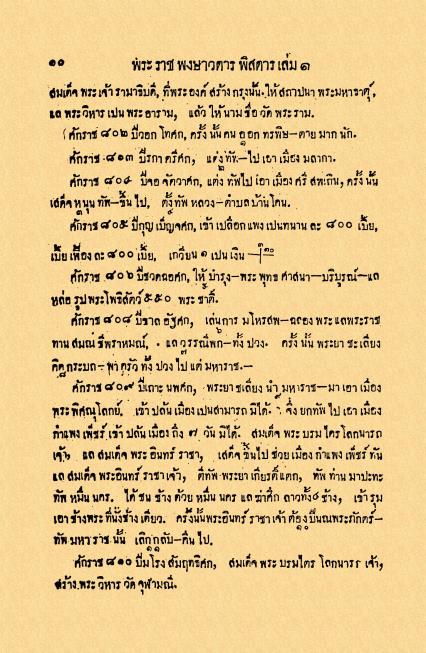 ๑๐ พระ ราช พงษาวดาร พิสดาร เล่ม ๑
สมเด็จ พระ เจ้า รามาธิบดี, ที่พระ องค์ สร้าง กรุงนั้น. ให้ สถาปนา พระมหาธาตุ์,
แล พระ วิหาร เปน พระ อาราม, แล้ว ให้ นาม ชื่อ วัด พระ ราม.
ศักราช ๘๐๒ ปีวอก โทศก, ครั้ง นั้น คน ออก ทรพิษ–ตาย มาก นัก.
ศักราช ๘๐๓ ปีรกา ตรีศก, แต่ง ทัพ–ไป เอา เมือง มลากา.
ศักราช ๘๐๔ ปีจอ จัตวาศก, แต่ง ทัพไป เอา เมือง ศรี สพเถิน, ครั้ง นั้น
เสด็จ หนุน ทัพ–ขึ้น ไป, ตั้ง ทัพ หลวง–ตำบล บ้าน โคน.
ศักราช ๘๐๕ ปีกุญ เบ็ญจศก, เข้า เปลือก แพง เปนทนาน ละ ๘๐๐ เบี้ย,
เบี้ย เฟื้อง ละ ๘๐๐ เบี้ย, เกวียน ๑ เปน เงิน
ศักราช ๘๐๖ ปีชวดฉอศก, ให้ บำรุง–พระ พุทธ ศาสนา–บริบูรณ์–แล
หล่อ รูป พระโพธิสัตว์ ๕๕๐ พระ ชาติ์.
ศักราช ๘๐๘ ปีขาล อัฐศก, เล่นการ มโหรสพ–ฉลอง พระ แลพระราช
ทาน สมณ ชีพราหมณ์, แล วรรณิพก–ทั้ง ปวง. ครั้ง นั้น พระยา ชะเลียง
คิดกระบถ–พา ครัว ทั้ง ปวง ไป แต่ มหาราช.–
ศักราช ๘๐๙ ปีเถาะ นพศก, พระยา ชเลียง นำ มหาราช–มา เอา เมือง
พระ พิศณุโลกย์. เข้า ปล้น เมือง เปนสามารถ มิได้. จึ่ง ยกทัพ ไป เอา เมือง
กำแพง เพ็ชร์. เข้า ปล้น เมือง ถึง ๗ วัน มิได้. สมเด็จ พระ บรม ไตร โลกนารถ
เจ้า, แล สมเด็จ พระ อินทร์ ราชา, เสด็จ ขึ้นไป ช่วย เมือง กำแพง เพ็ชร์ ทัน
แล สมเด็จ พระอินทร์ ราชา เจ้า, ตีทัพ พระยา เกียรติ์ แตก, ทัพ ท่าน มาปะทะ
ทัพ หมื่น นคร. ได้ ชน ช้าง ด้วย หมื่น นคร แล ข้าศึก ลาวทั้ง๔ ช้าง, เข้า รุม
เอา ช้างพระ ที่นั่งช้าง เดียว. ครั้งนั้นพระอินทร์ ราชา เจ้า ต้อง ปืนณพระภักตร์–
ทัพ มหา ราช นั้น เลิก กลับ–คืน ไป.
ศักราช ๘๑๐ ปีมโรง สัมฤทธิศก, สมเด็จ พระ บรมไตร โลกนารถ เจ้า,
สร้าง พระ วิหาร วัด จุฬามณี.